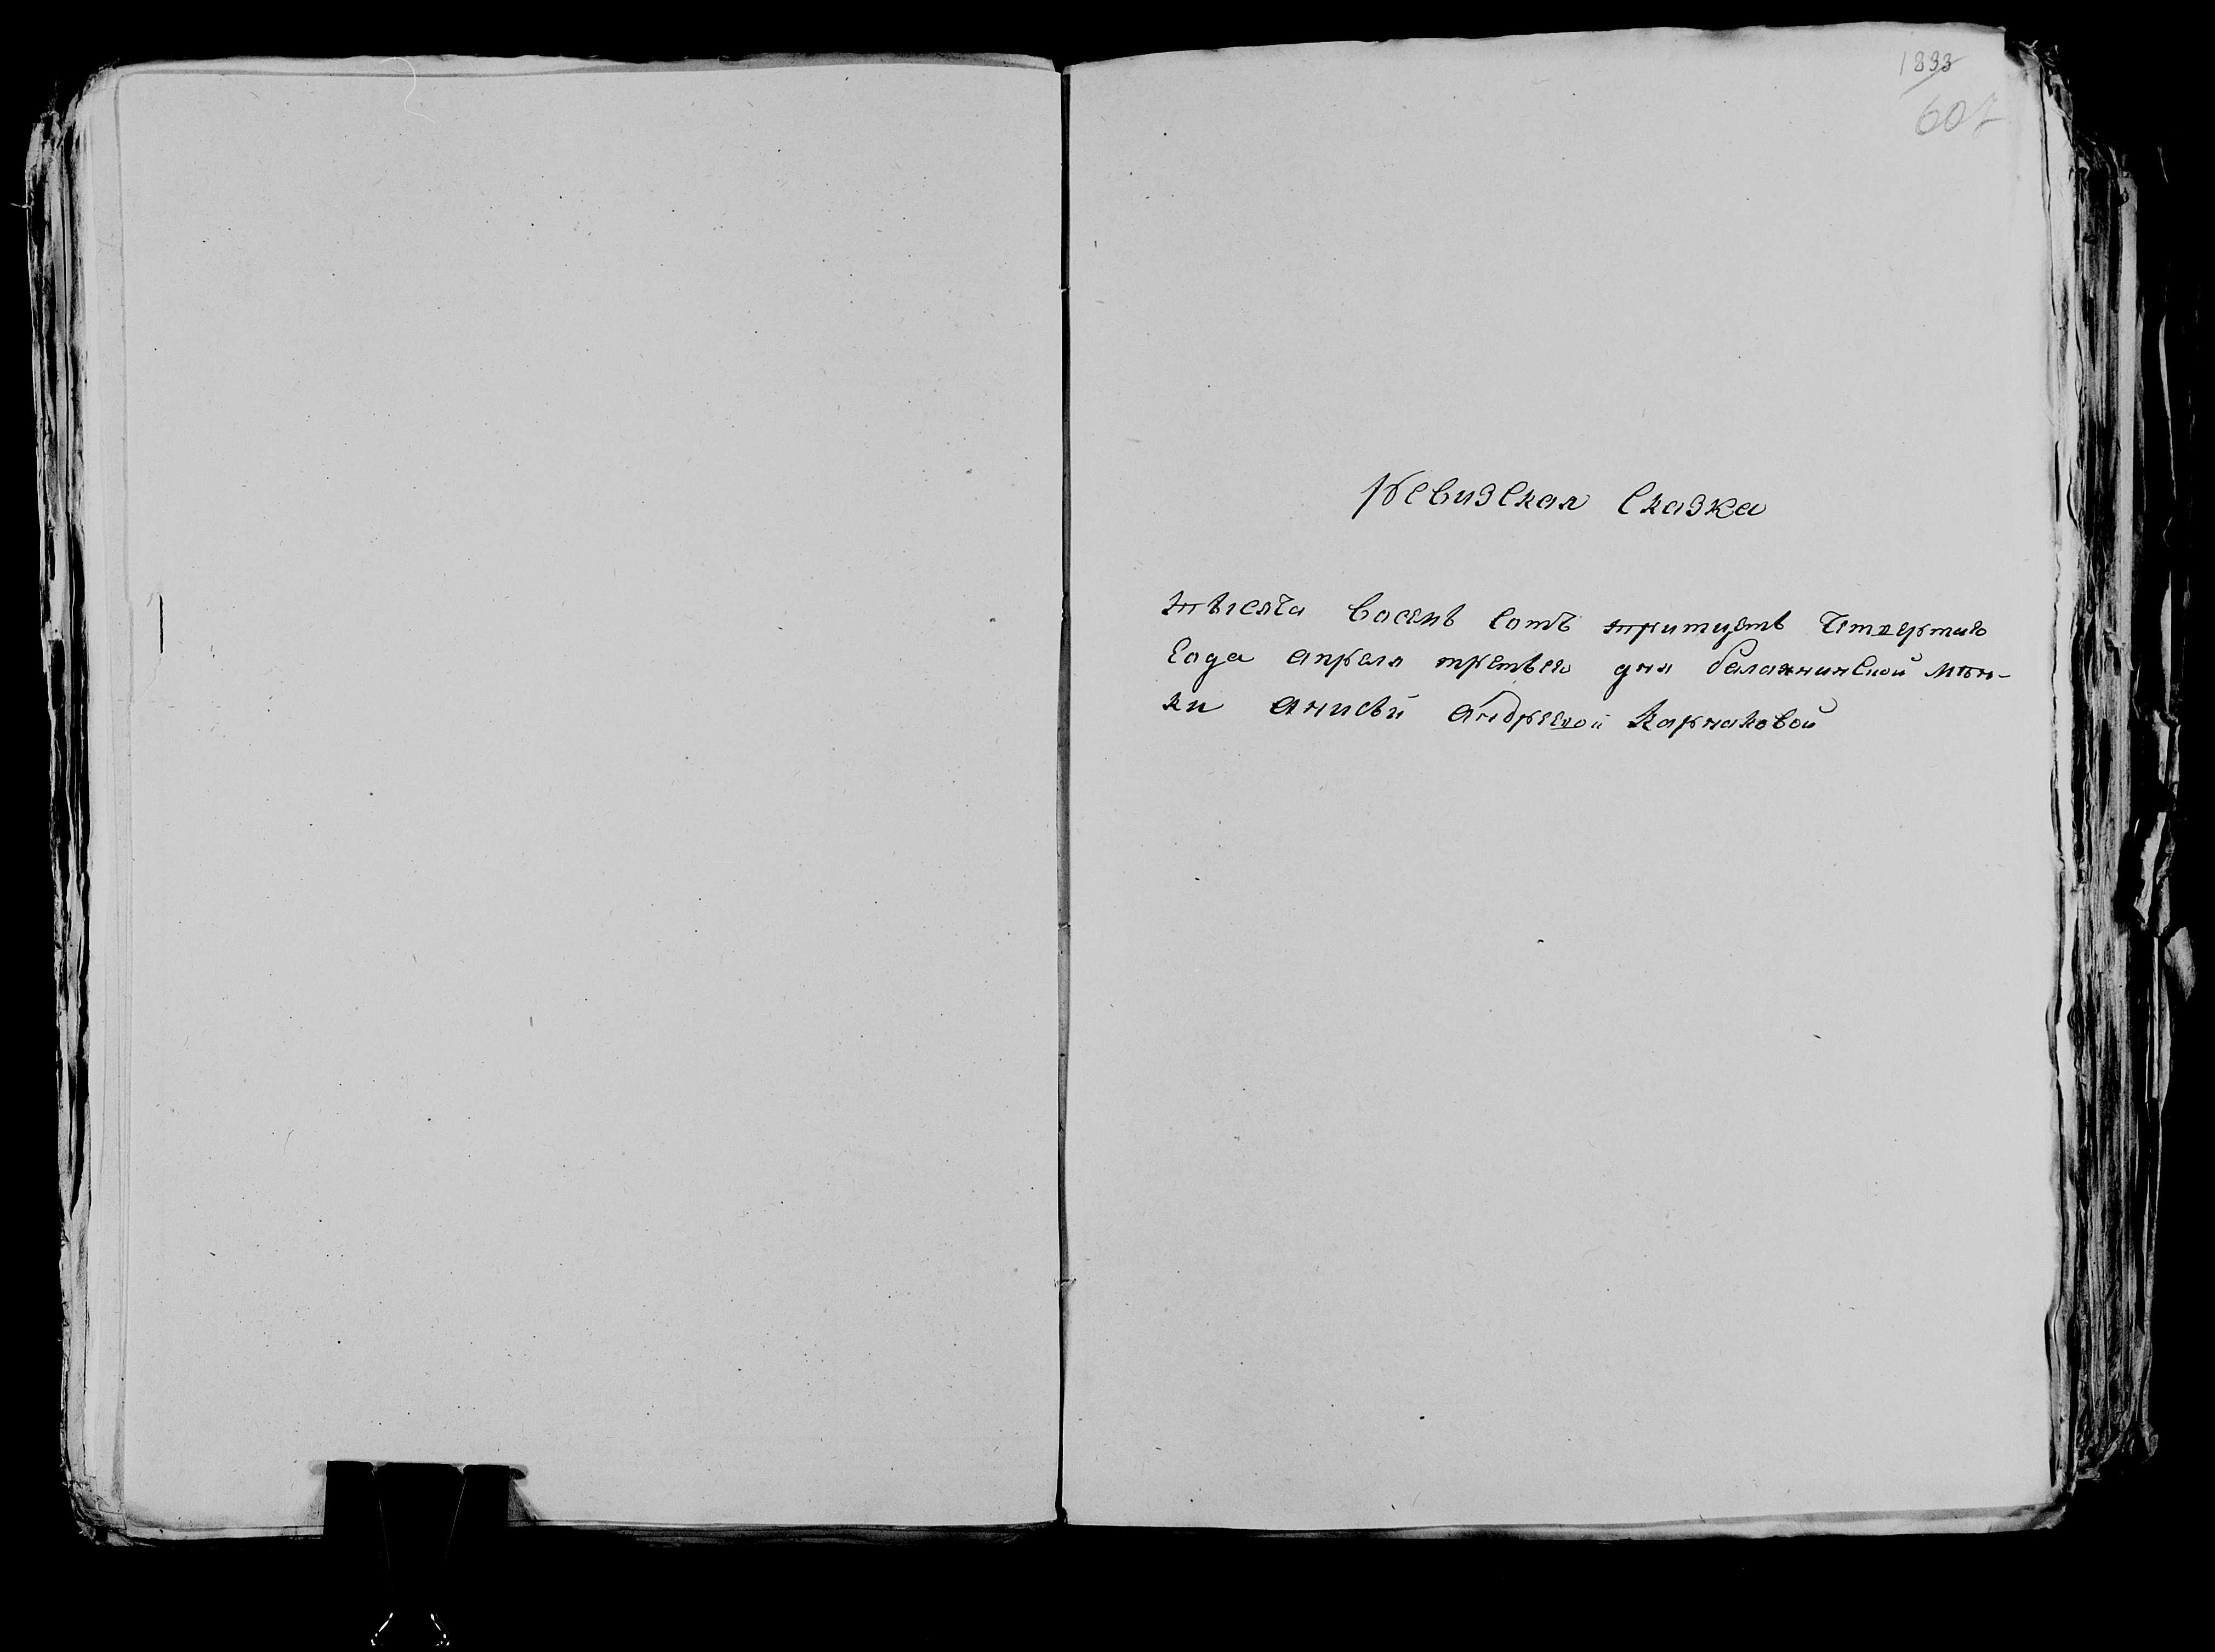 1833
607
Ревизская Сказка
тысяча восемь сотъ тритцеть Четвертаго
Года апреля третьего дня балахнинской мещан-
ки анисьи андреевой Карнаковой